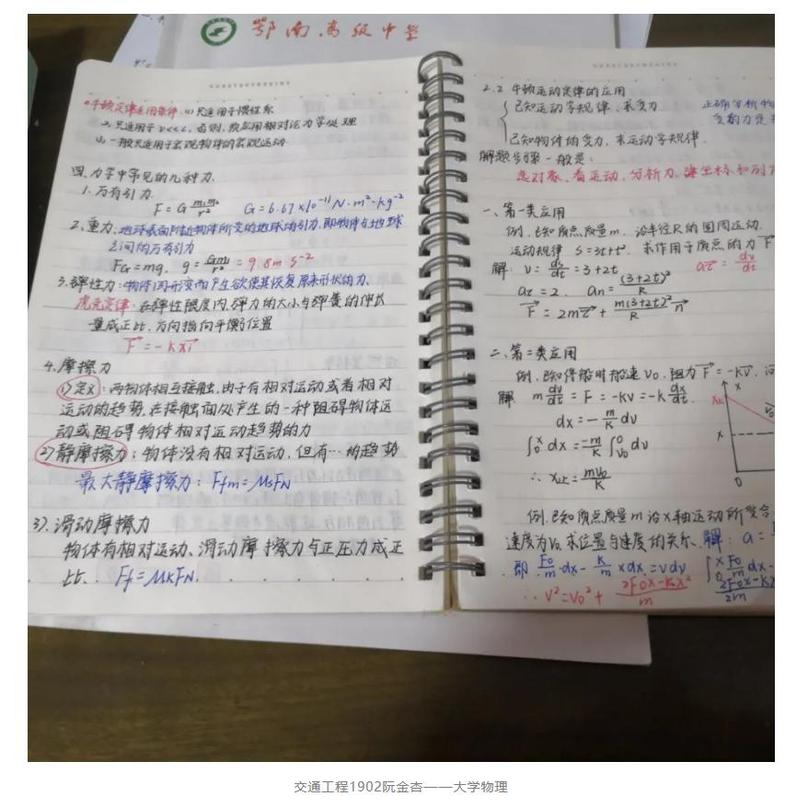 鄂南高级中学
牛顿定律适用条件：(1)只适用于惯性系
2.只适用于v<<c，否则，就应用相对论力学处理
(3)一般只适用于宏观物体的宏观运动
四.力学中常见的几种力
1.万有引力
F=G m₁m₂/r² G=6.67×10⁻¹¹ N·m²·kg⁻²
2.重力：地球表面附近物体所受的地球的引力，即物体与地球
之间的万有引力
FG=mg. g=Gm/r²=9.8m s⁻²
3.弹性力：物体因形变而产生欲使其恢复原来形状的力、
虎克定律：在弹性限度内，弹力的大小与弹簧的伸长
量成正比，方向指向平衡位置
F=-kxi
4.摩擦力
(1)定义：两物体相互接触，由于有相对运动或者相对
运动的趋势，在接触面处产生的一种阻碍物体运
动或阻碍物体相对运动趋势的力
2)静摩擦力：物体没有相对运动，但有…的趋势
最大静摩擦力：Ffm=μsFN
3).滑动摩擦力
物体有相对运动、滑动摩擦力与正压力成正
比. Ff=μkFN.
2.2 牛顿运动定律的应用
已知运动学规律，求受力
正确分析物
受力
已知物体的受力，求运动学规律.
解题步骤一般是：
选对象、看运动、分析力、建坐标和列方
一、第一类应用
例，已知质点质量m，沿半径R的圆周运动.
运动规律 S=3t+t². 求作用于质点的力F
解：v=ds/dt=3+2t aτ=dv/dt
aτ=2. an=(3+2t)²/R
F=2mτ+m(3+2t)²/R n
二、第二类应用
例，已知停船时船速v₀，阻力F=-kv，
解 m dv/dt=F=-kv=-k dx/dt.
dx=-m/k dv
∫₀ˣ dx=-m/k ∫v₀⁰ dv
∴ x止=mv₀/k
x
x止
x
0
例.已知质点质量m沿x轴运动所受合
速度为v₀求位置与速度的关系. 解：a=
即 F₀/m dx-k/m xdx=vdv ∫₀ˣ F₀/m dx-
∴v²=v₀²+(2F₀x-kx²)/m (2F₀x-kx)/2m
交通工程1902阮金杏——大学物理